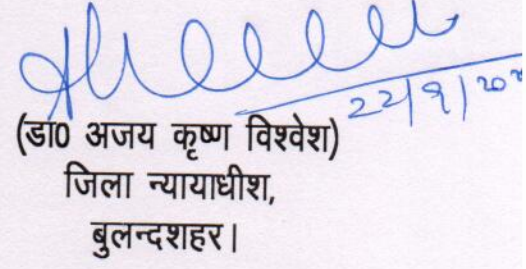 22/9/20
(डा0 अजय कृष्ण विश्वेश)
जिला न्यायाधीश,
बुलन्दशहर।